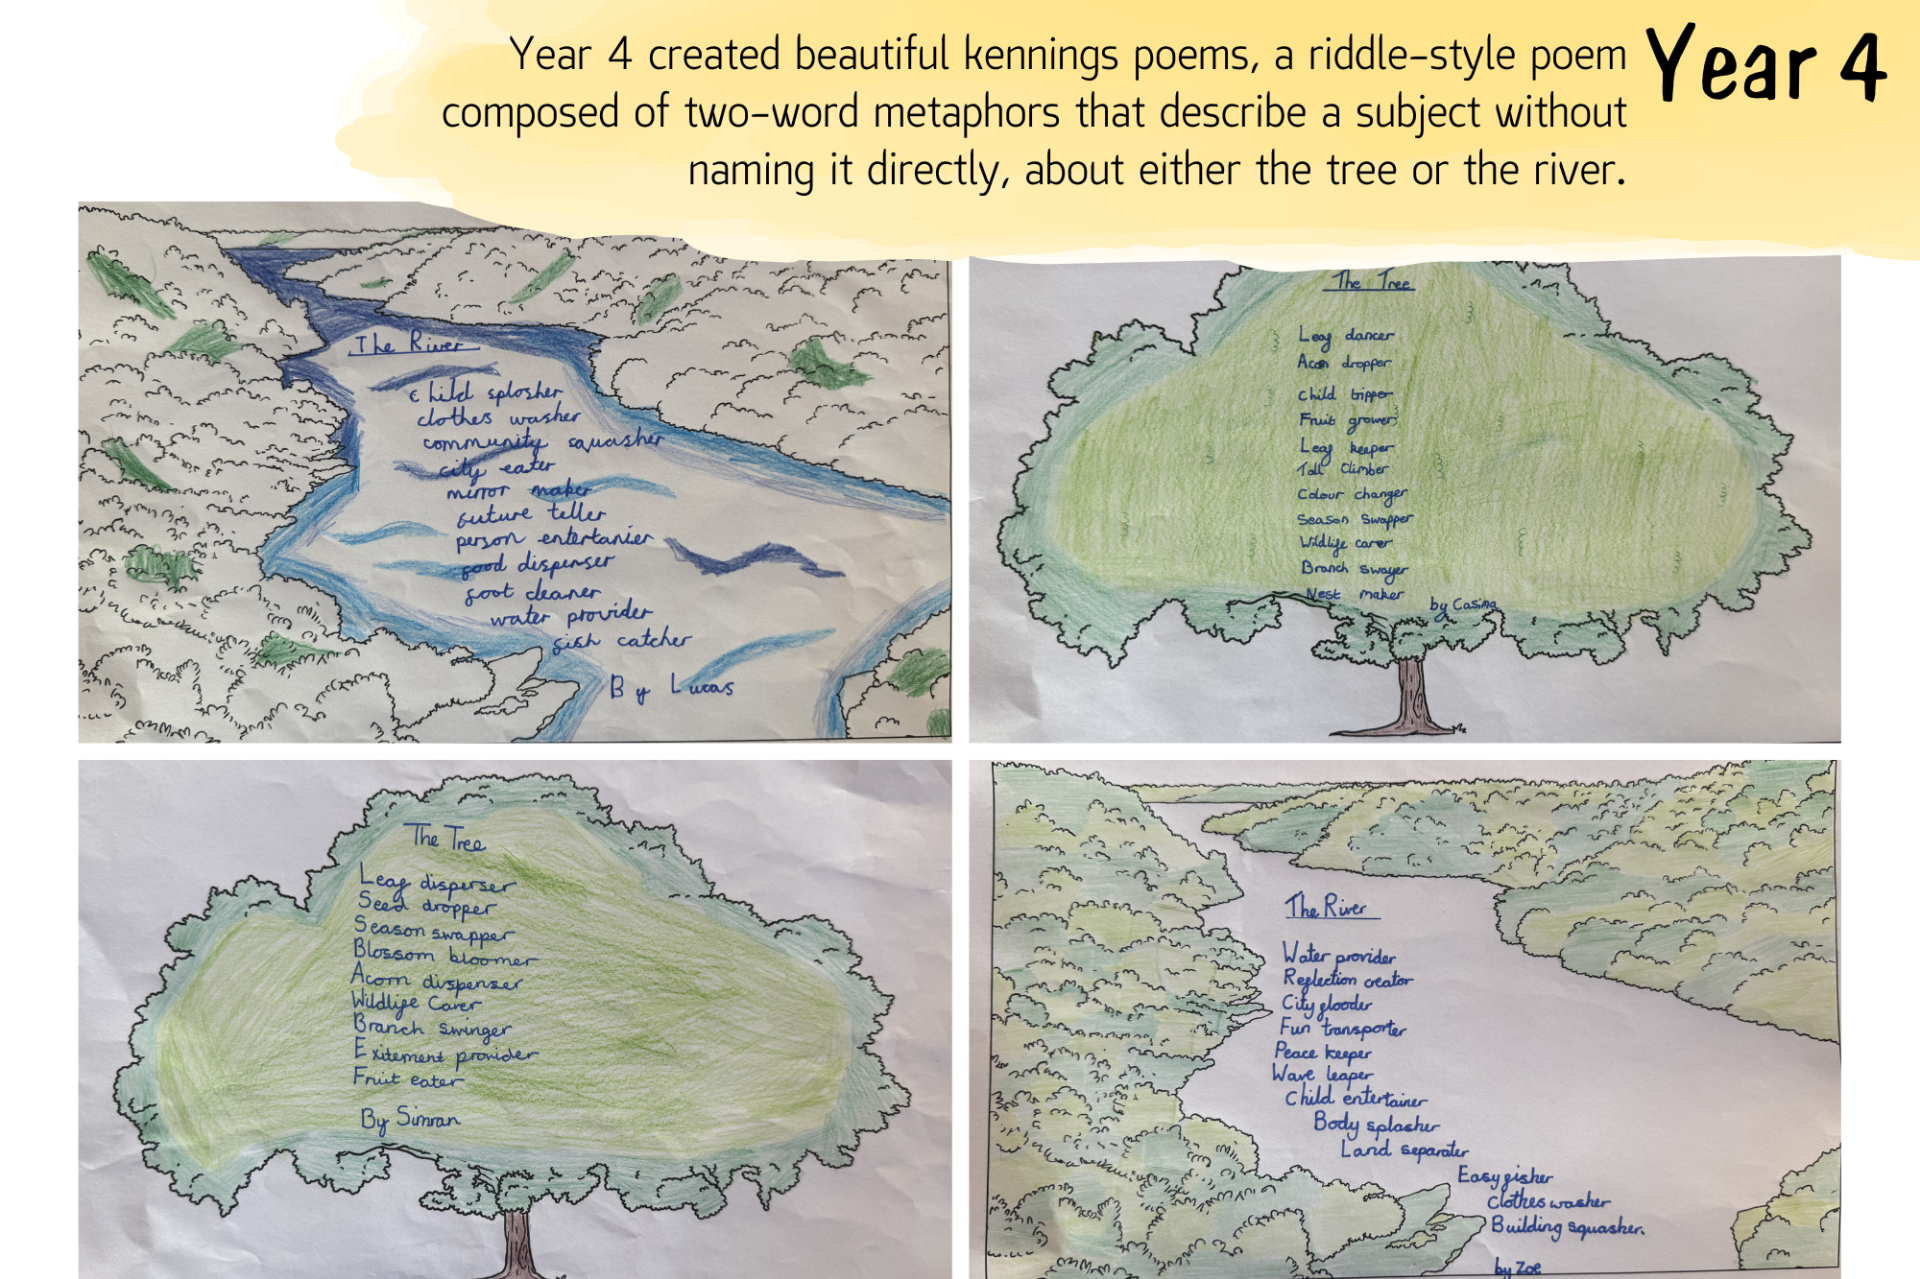 Year 4 created beautiful kennings poems, a riddle-style poem
composed of two-word metaphors that describe a subject without
naming it directly, about either the tree or the river.
Year 4
The River
child splosher
clothes washer
community squasher
city eater
mirror maker
future teller
person entertanier
food dispenser
foot cleaner
water provider
fish catcher
By Lucas
The Tree
Leaf dancer
Acon dropper
Child tripper
Fruit grower
Leaf keeper
Tall Climber
Colour changer
Season Swapper
Wildlife carer
Branch swayer
Nest maker
by Casina
The Tree
Leaf disperser
Seed dropper
Season swapper
Blossom bloomer
Acorn dispenser
Wildlife Carer
Branch swinger
Exitement provider
Fruit eater
By Simran
The River
Water provider
Reflection creator
City flooder
Fun transporter
Peace keeper
Wave leaper
Child entertainer
Body splasher
Land separater
Easy fisher
Clothes washer
Building squasher.
by Zoe